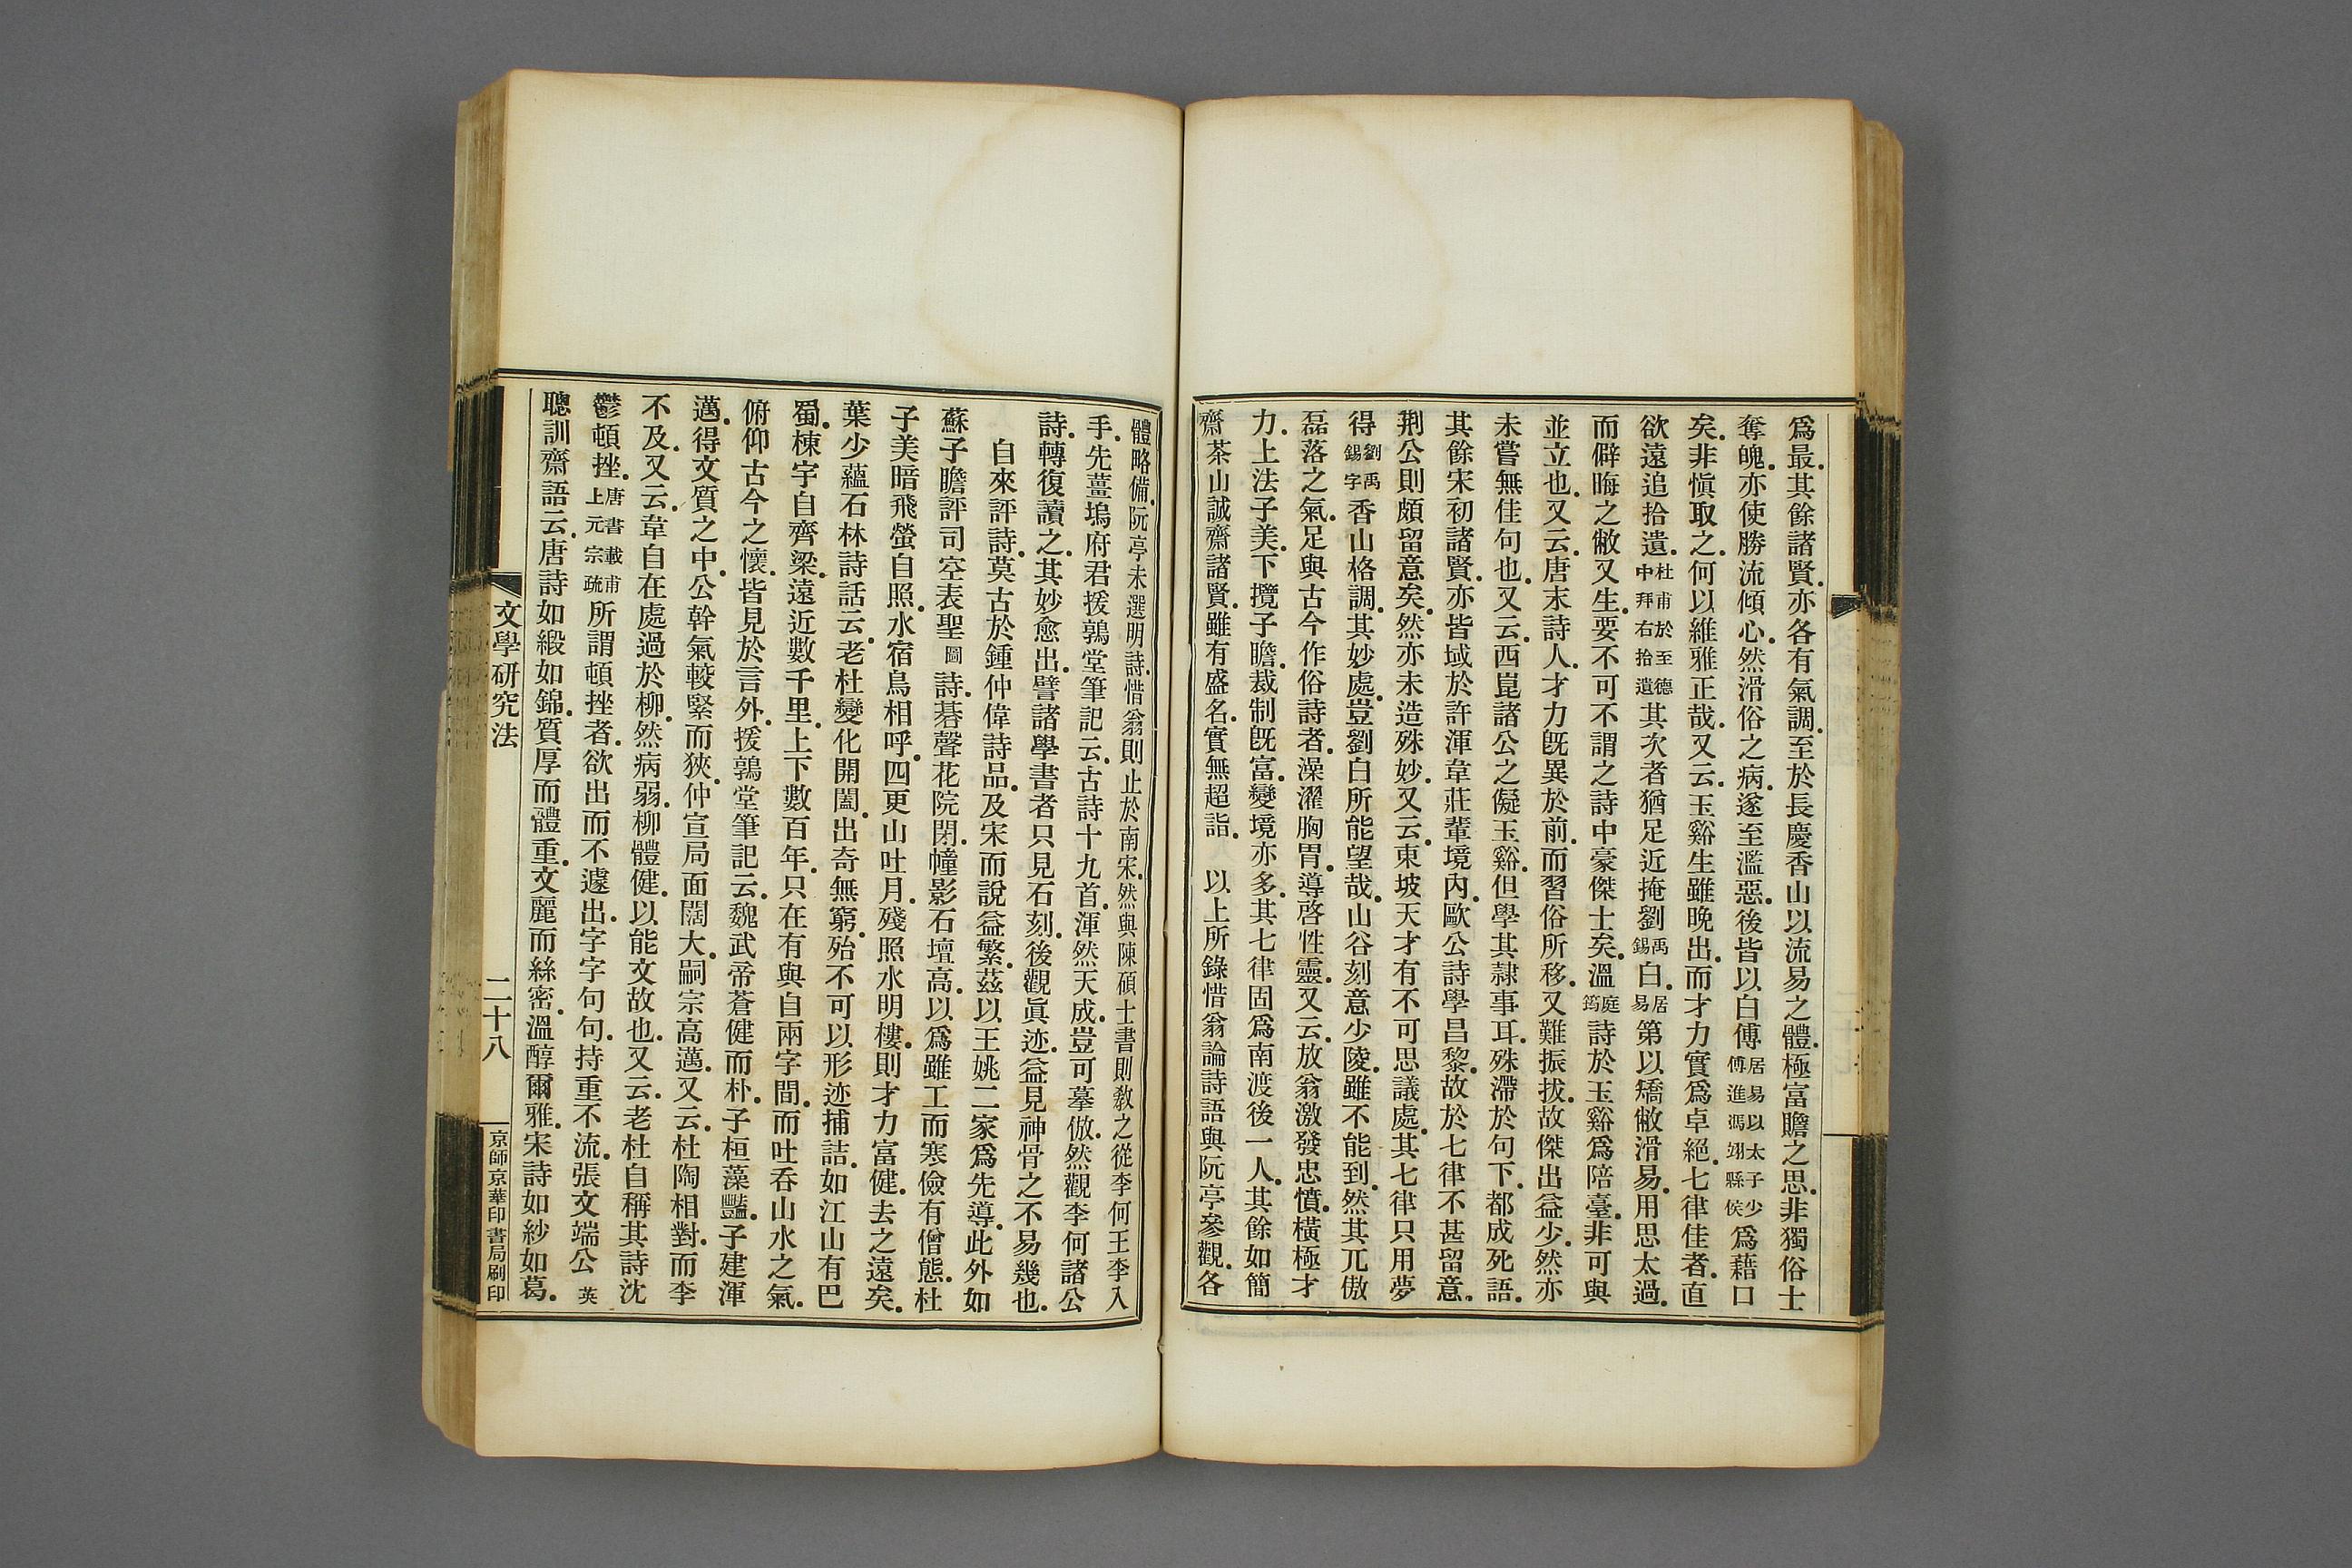 爲最.其餘諸賢.亦各有氣調.至於長慶香山以流易之體.極富贍之思.非獨俗士
奪魄.亦使勝流傾心.然滑俗之病.遂至濫惡.後皆以白傅居易以太子少傅進馮翊縣侯爲藉口
矣.非愼取之.何以維雅正哉.又云.玉谿生雖晚出.而才力實爲卓絕.七律佳者.直
欲遠追拾遺.杜甫於至德中拜右拾遺其次者猶足近掩劉禹錫白.居易第以矯敝滑易.用思太過.
而僻晦之敝又生.要不可不謂之詩中豪傑士矣.溫庭筠詩於玉谿爲陪臺.非可與
並立也.又云.唐末詩人.才力旣異於前.而習俗所移.又難振拔.故傑出益少.然亦
未嘗無佳句也.又云.西崑諸公之儗玉谿.但學其隸事耳.殊滯於句下.都成死語.
其餘宋初諸賢.亦皆域於許渾韋莊輩境內.歐公詩學昌黎.故於七律不甚留意.
荆公則頗留意矣.然亦未造殊妙.又云.東坡天才有不可思議處.其七律只用夢
得劉禹錫字香山格調.其妙處.豈劉白所能望哉.山谷刻意少陵.雖不能到.然其兀傲
磊落之氣.足與古今作俗詩者.澡濯胸胃.導啓性靈.又云.放翁激發忠憤.橫極才
力.上法子美.下攬子瞻.裁制旣富.變境亦多.其七律固爲南渡後一人.其餘如簡
齋茶山誠齋諸賢.雖有盛名.實無超詣. 以上所錄惜翁論詩語與阮亭參觀.各
體略備.阮亭未選明詩.惜翁則止於南宋.然與陳碩士書則敎之從李何王李入
手.先薑塢府君援鶉堂筆記云.古詩十九首.渾然天成.豈可摹倣.然觀李何諸公
詩.轉復讀之.其妙愈出.譬諸學書者只見石刻.後觀眞迹.益見神骨之不易幾也.
自來評詩.莫古於鍾仲偉詩品.及宋而說益繁.茲以王姚二家爲先導.此外如
蘇子瞻評司空表聖圖詩.棊聲花院閉.幢影石壇高.以爲雖工而寒儉有僧態.杜
子美暗飛螢自照.水宿鳥相呼.四更山吐月.殘照水明樓.則才力富健.去之遠矣.
葉少蘊石林詩話云.老杜變化開闔.出奇無窮.殆不可以形迹捕詰.如江山有巴
蜀.棟宇自齊梁.遠近數千里.上下數百年.只在有與自兩字間.而吐呑山水之氣.
俯仰古今之懷.皆見於言外.援鶉堂筆記云.魏武帝蒼健而朴.子桓藻豔.子建渾
邁.得文質之中.公幹氣較緊而狹.仲宣局面闊大.嗣宗高邁.又云.杜陶相對.而李
不及.又云.韋自在處過於柳.然病弱.柳體健.以能文故也.又云.老杜自稱其詩沈
鬱頓挫.唐書載甫上元宗疏所謂頓挫者.欲出而不遽出.字字句句.持重不流.張文端公英
聰訓齋語云.唐詩如緞如錦.質厚而體重.文麗而絲密.溫醇爾雅.宋詩如紗如葛.
文學研究法
二十八
京師京華印書局刷印